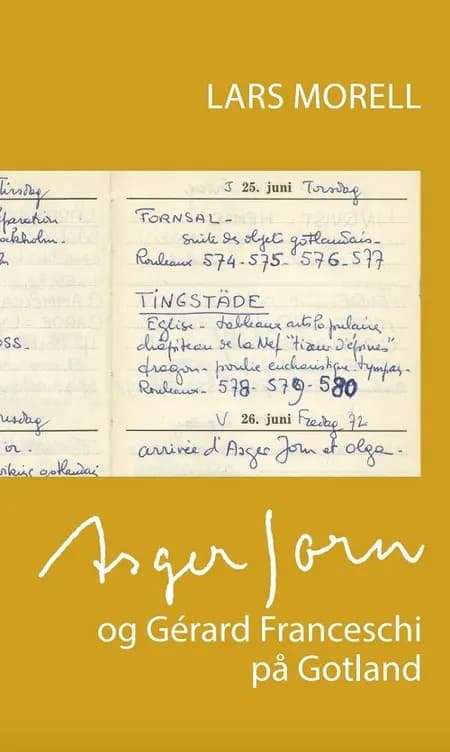 LARS MORELL
Tirsdag
éparation
ockholm.-
oss.
sdag
or.-
viking gotlandais
J 25. juni Torsdag
FORNSAL-
suite des objets gotlandais-
Rouleaux 574-575-576-577
TINGSTÄDE
Eglise- tableaux arts Populaire
chapiteau de la Nef "tireur d'épines"
dragon- poulie eucharistique tympas-
Rouleaux- 578-579-580
V 26. juni Fredag
arrivée d'Asger Jorn et olga-
Asger Jorn
og Gérard Franceschi
på Gotland